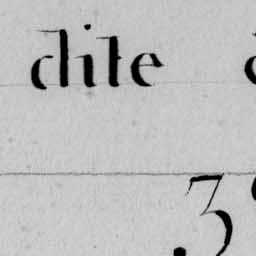 dite
.3